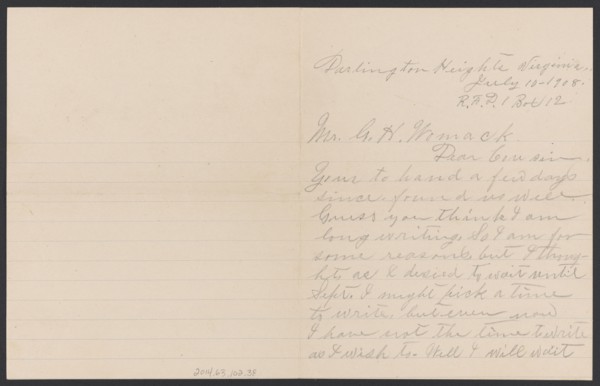 Darlington Heights Virginia.
July 10-1908.
R.F.D. 1 Box 12
Mr. G. H. Womack
Dear Cousin.
Your to hand a few days
since. found us well.
Guess you think I am
long writing. So I am for
some reasons, but I thou-
ght as I desied to wait until
Sept. I might pick a time
to write. but even now
I have not the time to write
as I wish to. Well I will wait
2014.63.102.38